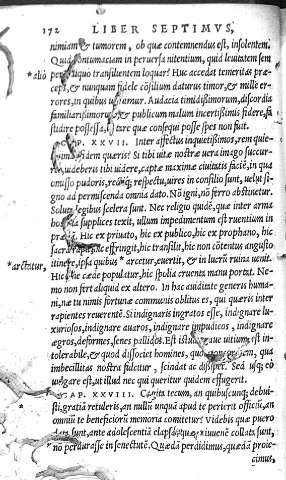 172 LIBER SEPTIMVS,
nimiam & tumorem, ob quæ contemnendus est, insolentem.
contumaciam in peruersa nitentium, quid leuitatem sem
*aliò transilientem loquar? Huc accedat temeritas præ
ceps, & nunquam fidele cōsilium daturus timor, & mille er-
rores, in quibus Audacia timidißimorum, discordia
& publicum malum incertißimis fidere, fa
stidire possessa, quæ consequi posse spes non fuit.
CAP. XXVII. Inter affectus inquietißimos, rem quie-
quæris? Si tibi uitæ nostræ uera imago succur-
uideberis tibi uidere, captæ maximè ciuitatis faciē, in qua
omisso pudoris, respectu, uires in consilio sunt, uelut si-
gno ad permiscenda omnia dato. Nō igni, nō ferro abstinetur.
Soluta legibus scelera sunt. Nec religio quidē, quæ inter arma
supplices texit, ullum impedimentum est ruentium in
Hic ex priuato, hic ex publico, hic ex prophano, hic
sacro rapit, hic effringit, hic transilit, hic non cōtentus angusto
*arctatur, itinere, ipsa quibus *arcetur, euertit, & in lucrū ruina uenit.
Hic sine cæde populatur, hic spolia cruenta manu portat. Ne-
mo non fert aliquid ex altero. In hac auiditate generis huma-
ni, næ tu nimis fortunæ communis oblitus es, qui quæris inter
rapientes reuerentē. Si indignaris ingratos esse, indignare lu-
xuriosos, indignare auaros, indignare impudicos, indignare
ægros, deformes, senes pallidos. Est istud graue uitium, est in-
tolerabile, & quod dissociet homines, quod concordiam, qua
imbecillitas nostra fulcitur, scindat ac dißipet. Sed usque eò
uulgare est, ut illud nec qui queritur quidem effugerit.
CAP. XXVIII. Cogita tecum, an quibuscunque debui-
sti, gratiā retuleris, an nullū unquā apud te perierit officiū, an
omniū te beneficiorū memoria comitetur? Videbis quæ puero
data sunt, ante adolescentiā elapsa, quæ in iuuenē collata sunt,
nō perdurasse in senectutē. Quædā perdidimus, quædā proie-
cimus,